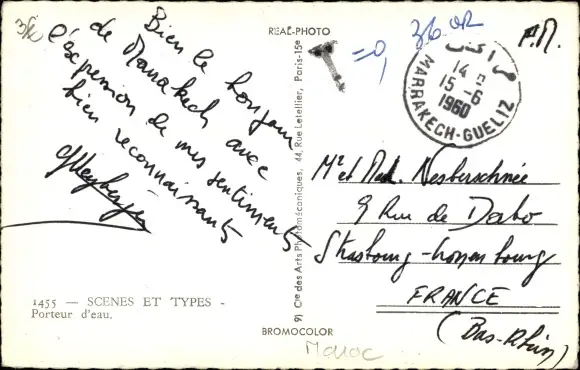 Bien le bonjour
de Marrakech avec
l'expression de mes sentiments
bien reconnaissants
1455 — SCENES ET TYPES -
Porteur d'eau.
REAL-PHOTO
9) Cie des Arts Photomécaniques, 44, Rue Letellier, Paris-15e
BROMOCOLOR
Maroc
T
=0,
36.02
P.M.
مراكش
14
15-6
1960
MARRAKECH-GUELIZ
Mr et Mad. Nesberschnée
9 Rue de Dabo
Strasbourg-
FRANCE
(Bas-Rhin)